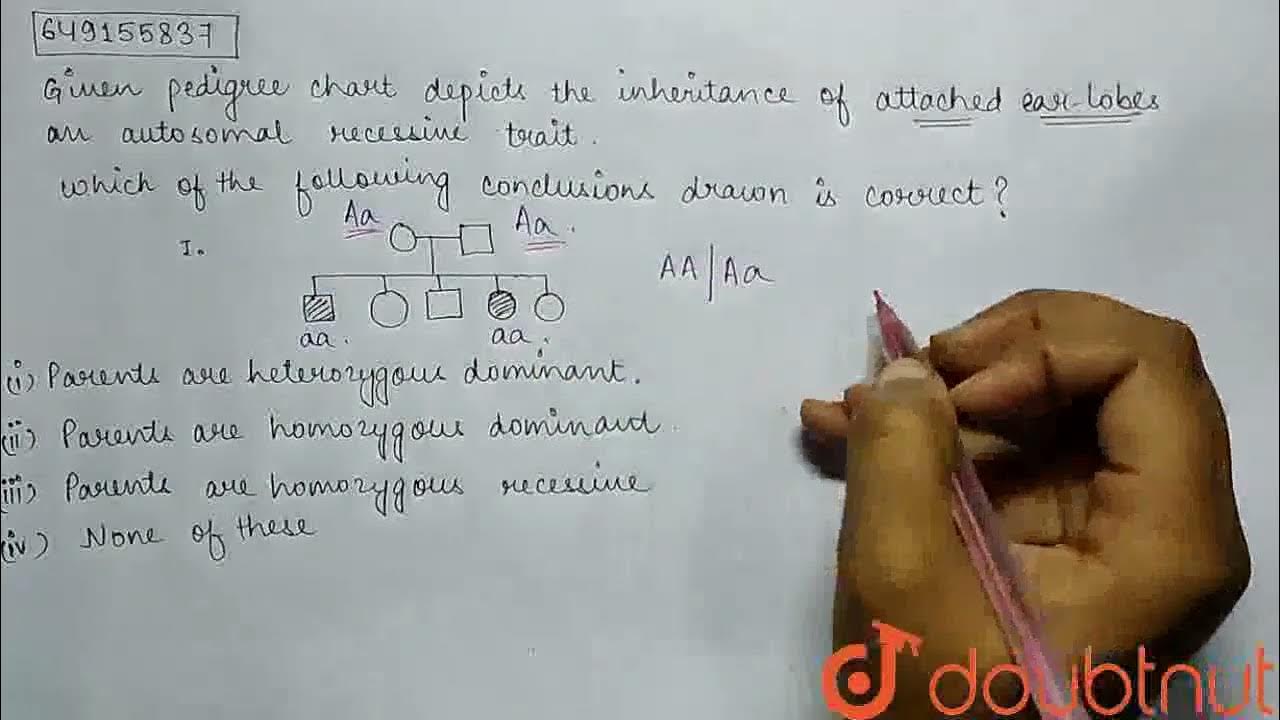 649155837
Given pedigree chart depicts the inheritance of attached ear-lobes
an autosomal recessive trait.
which of the following conclusions drawn is correct?
Aa Aa.
I.
AA|Aa
aa. aa.
(i) Parents are heterozygous dominant.
(ii) Parents are homozygous dominant.
(iii) Parents are homozygous recessive
(iv) None of these
doubtnut